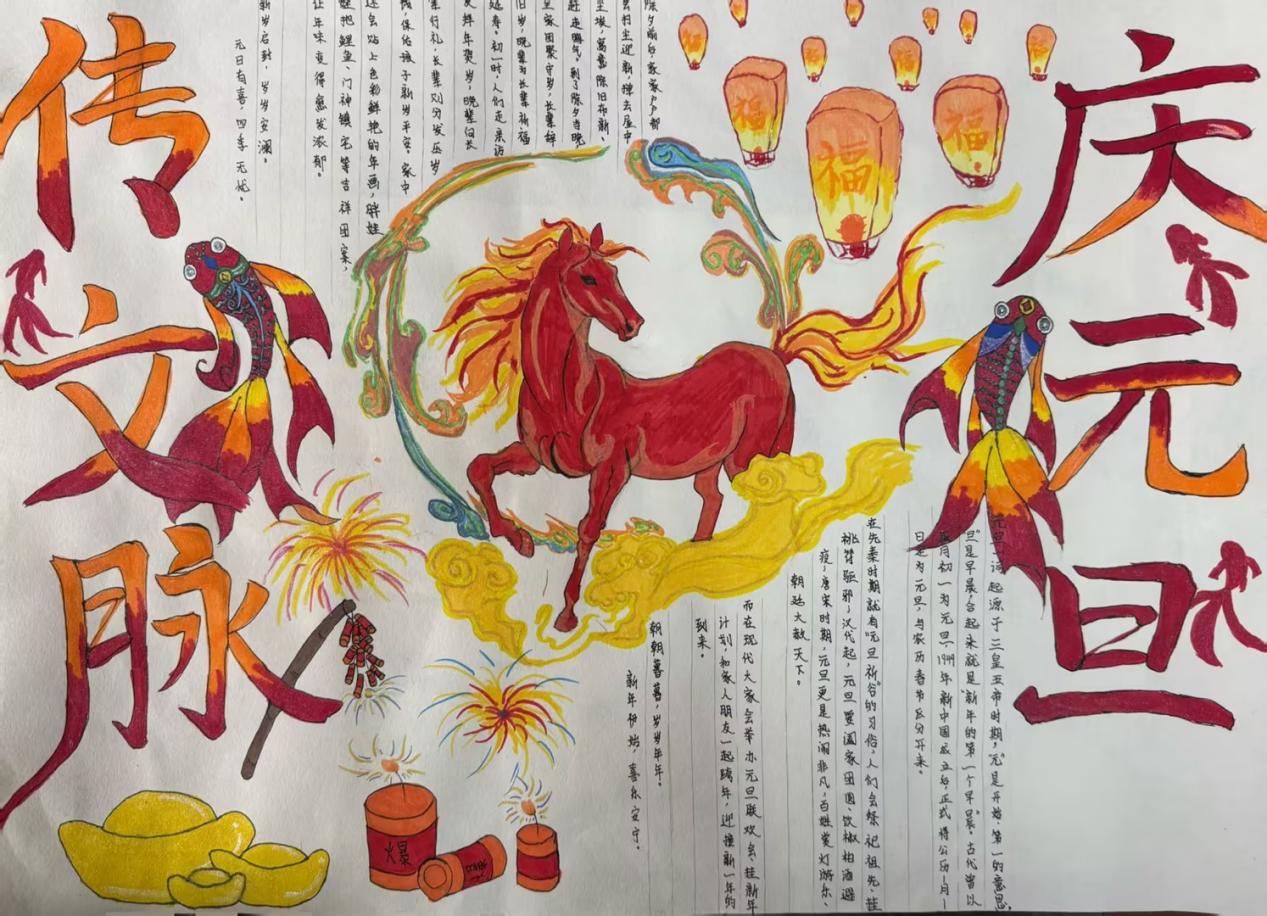 庆元旦
传文脉
福
福
福
元旦一词起源于三皇五帝时期,"元"是开始、第一的意思,
"旦"是早晨,合起来就是"新年的第一个早晨"。古代曾以
正月初一为元旦,1949年新中国成立后,正式将公历1月1
日定为元旦,与农历春节区分开来。
在先秦时期就有"元旦祈谷"的习俗,人们会祭祀祖先、挂
桃符驱邪;汉代起,元旦要阖家团圆、饮椒柏酒避
疫;唐宋时期,元旦更是热闹非凡,百姓赏灯游乐、
朝廷大赦天下。
而在现代大家会举办元旦联欢会、挂新年
计划,和家人朋友一起跨年,迎接新一年的
到来。
朝朝暮暮,岁岁年年。
新年伊始,喜乐安宁。
除夕前后,家家户户都
会扫尘迎新,掸去屋中
尘埃,寓意除旧布新、
赶走晦气。到了除夕当晚,
全家团聚守岁,长辈辞
旧岁,晚辈为长辈祈福
延寿。初一时,人们走亲访
友拜年贺岁,晚辈向长
辈行礼,长辈则分发压岁
钱,保佑孩子新岁平安。家中
还会贴上色彩鲜艳的年画,胖娃
娃抱鲤鱼、门神镇宅等吉祥图案,
让年味变得愈发浓郁。
新岁启封,岁岁安澜。
元日有喜,四季无忧。
爆